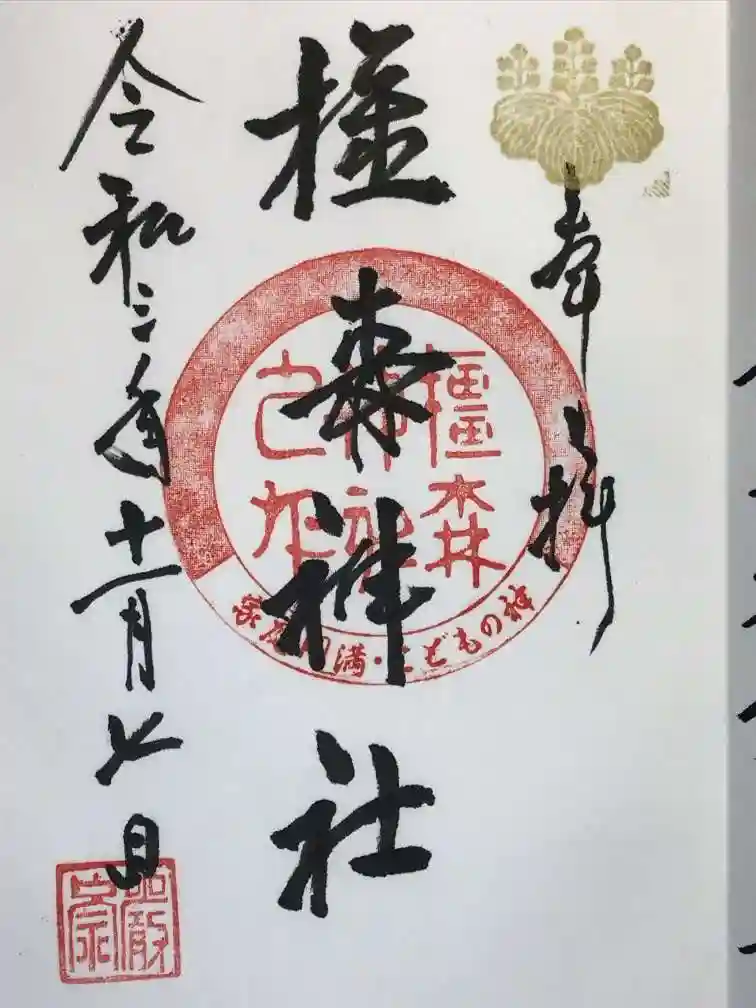 奉拝
橿森神社
橿森
神社
家庭円満・こどもの神
令和三年十一月七日